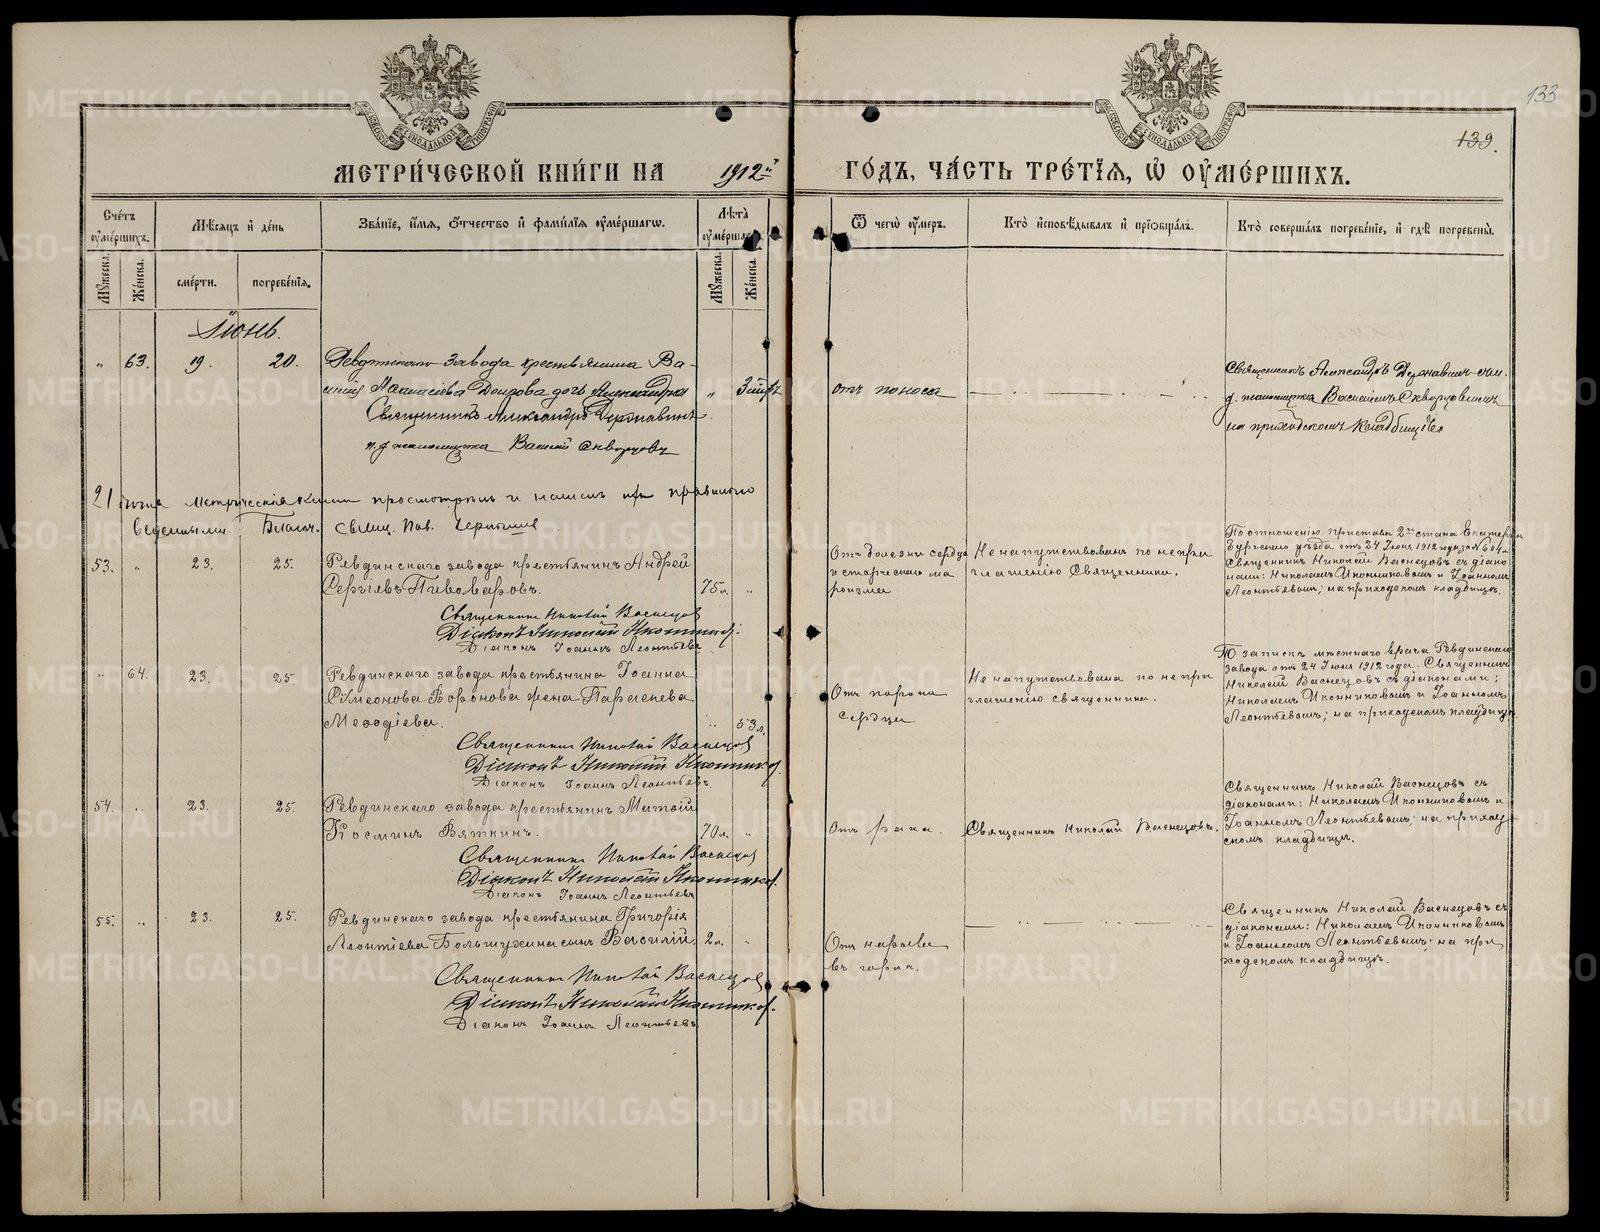 133
139.
МЕТРИ́ЧЕСКОЙ КНИ́ГИ НА 1912й ГО́ДЪ, ЧА́СТЬ ТРЕ́ТІѦ, Ѡ҆ ОУ҆МЕ́РШИХЪ.
Сче́тъ оу҆ме́ршихъ.
Мꙋ́жеска.
Же́нска.
Мѣ́сѧцъ и҆ де́нь
сме́рти.
погребе́нїѧ.
Зва́нїе, и҆́мѧ, ѻ҆́тчество и҆ фами́лїѧ оу҆ме́ршагѡ.
Лѣ́та оу҆ме́ршагѡ.
Мꙋ́жеска.
Же́нска.
Ѿ чегѡ̀ оу҆́меръ.
Кто̀ и҆сповѣ́дывалъ и҆ прїѡбща́лъ.
Кто̀ соверша́лъ погребе́нїе, и҆ гдѣ̀ погребены̀.
Іюнь.
„ 63. 19. 20. Ревдинскаго завода крестьянина Ва-
силія Доудова дочь Александра „ 3
Священникъ Александръ Державинъ.
и. д. псаломщика Василій Скворцовъ
отъ поноса
Священникъ Александръ Державинъ
д. псаломщика Василіемъ Скворцовымъ
на приходскомъ кладбищѣ
21 іюня Метрическія книги просмотрѣлъ и нашелъ правильно
веденными. Благоч. свящ. Пав.
53. „ 23. 25. Ревдинскаго завода крестьянинъ Андрей
Сергіевъ Пивоваровъ. 75 л. „
Священникъ Николай Васнецовъ
Діаконъ Николай Иконниковъ.
Діаконъ Іоаннъ Леонтьевъ
Отъ болезни сердца
и старческаго ма
разма
Не напутствованъ по непри
глашенію Священника.
По отношенію Пристава 2го стана Екатерин
бургскаго уѣзда отъ 24 Іюня 1912 года за № 604
Священникъ Николай Васнецовъ съ діако
нами: Николаемъ Иконниковымъ и Іоанномъ
Леонтьевымъ; на приходскомъ кладбищѣ.
„ 64. 23. 25. Ревдинскаго завода крестьянина Іоанна
Симеонова Воронова жена Параскева
Меѳодіева. „ 53 л.
Священникъ Николай Васнецовъ
Діаконъ Николай Иконниковъ.
Діаконъ Іоаннъ Леонтьевъ.
Отъ порока
сердца
Не напутствована по непри
глашенію священника.
По запискѣ мѣстнаго врача Ревдинскаго
завода отъ 24 Іюня 1912 года. Священникъ
Николай Васнецовъ съ діаконами:
Николаемъ Иконниковымъ и Іоанномъ
Леонтьевымъ; на приходскомъ кладбищѣ.
54. „ 23. 25. Ревдинскаго завода крестьянинъ
Косминъ Вяткинъ. 70 л. „
Священникъ Николай Васнецовъ
Діаконъ Николай Иконниковъ.
Діаконъ Іоаннъ Леонтьевъ
Отъ рака.
Священникъ Николай Васнецовъ.
Священникъ Николай Васнецовъ съ
діаконами: Николаемъ Иконниковымъ и
Іоанномъ Леонтьевымъ; на приход
скомъ кладбищѣ.
55. „ 23. 25. Ревдинскаго завода крестьянина Григорія
Леонтіева сынъ Василій. 2 л. „
Священникъ Николай Васнецовъ
Діаконъ Николай Иконниковъ.
Діаконъ Іоаннъ Леонтьевъ.
Отъ нарыва
въ горлѣ.
Священникъ Николай Васнецовъ съ
діаконами: Николаемъ Иконниковымъ
и Іоанномъ Леонтьевымъ; на при
ходскомъ кладбищѣ.
METRIKI.GASO-URAL.RU